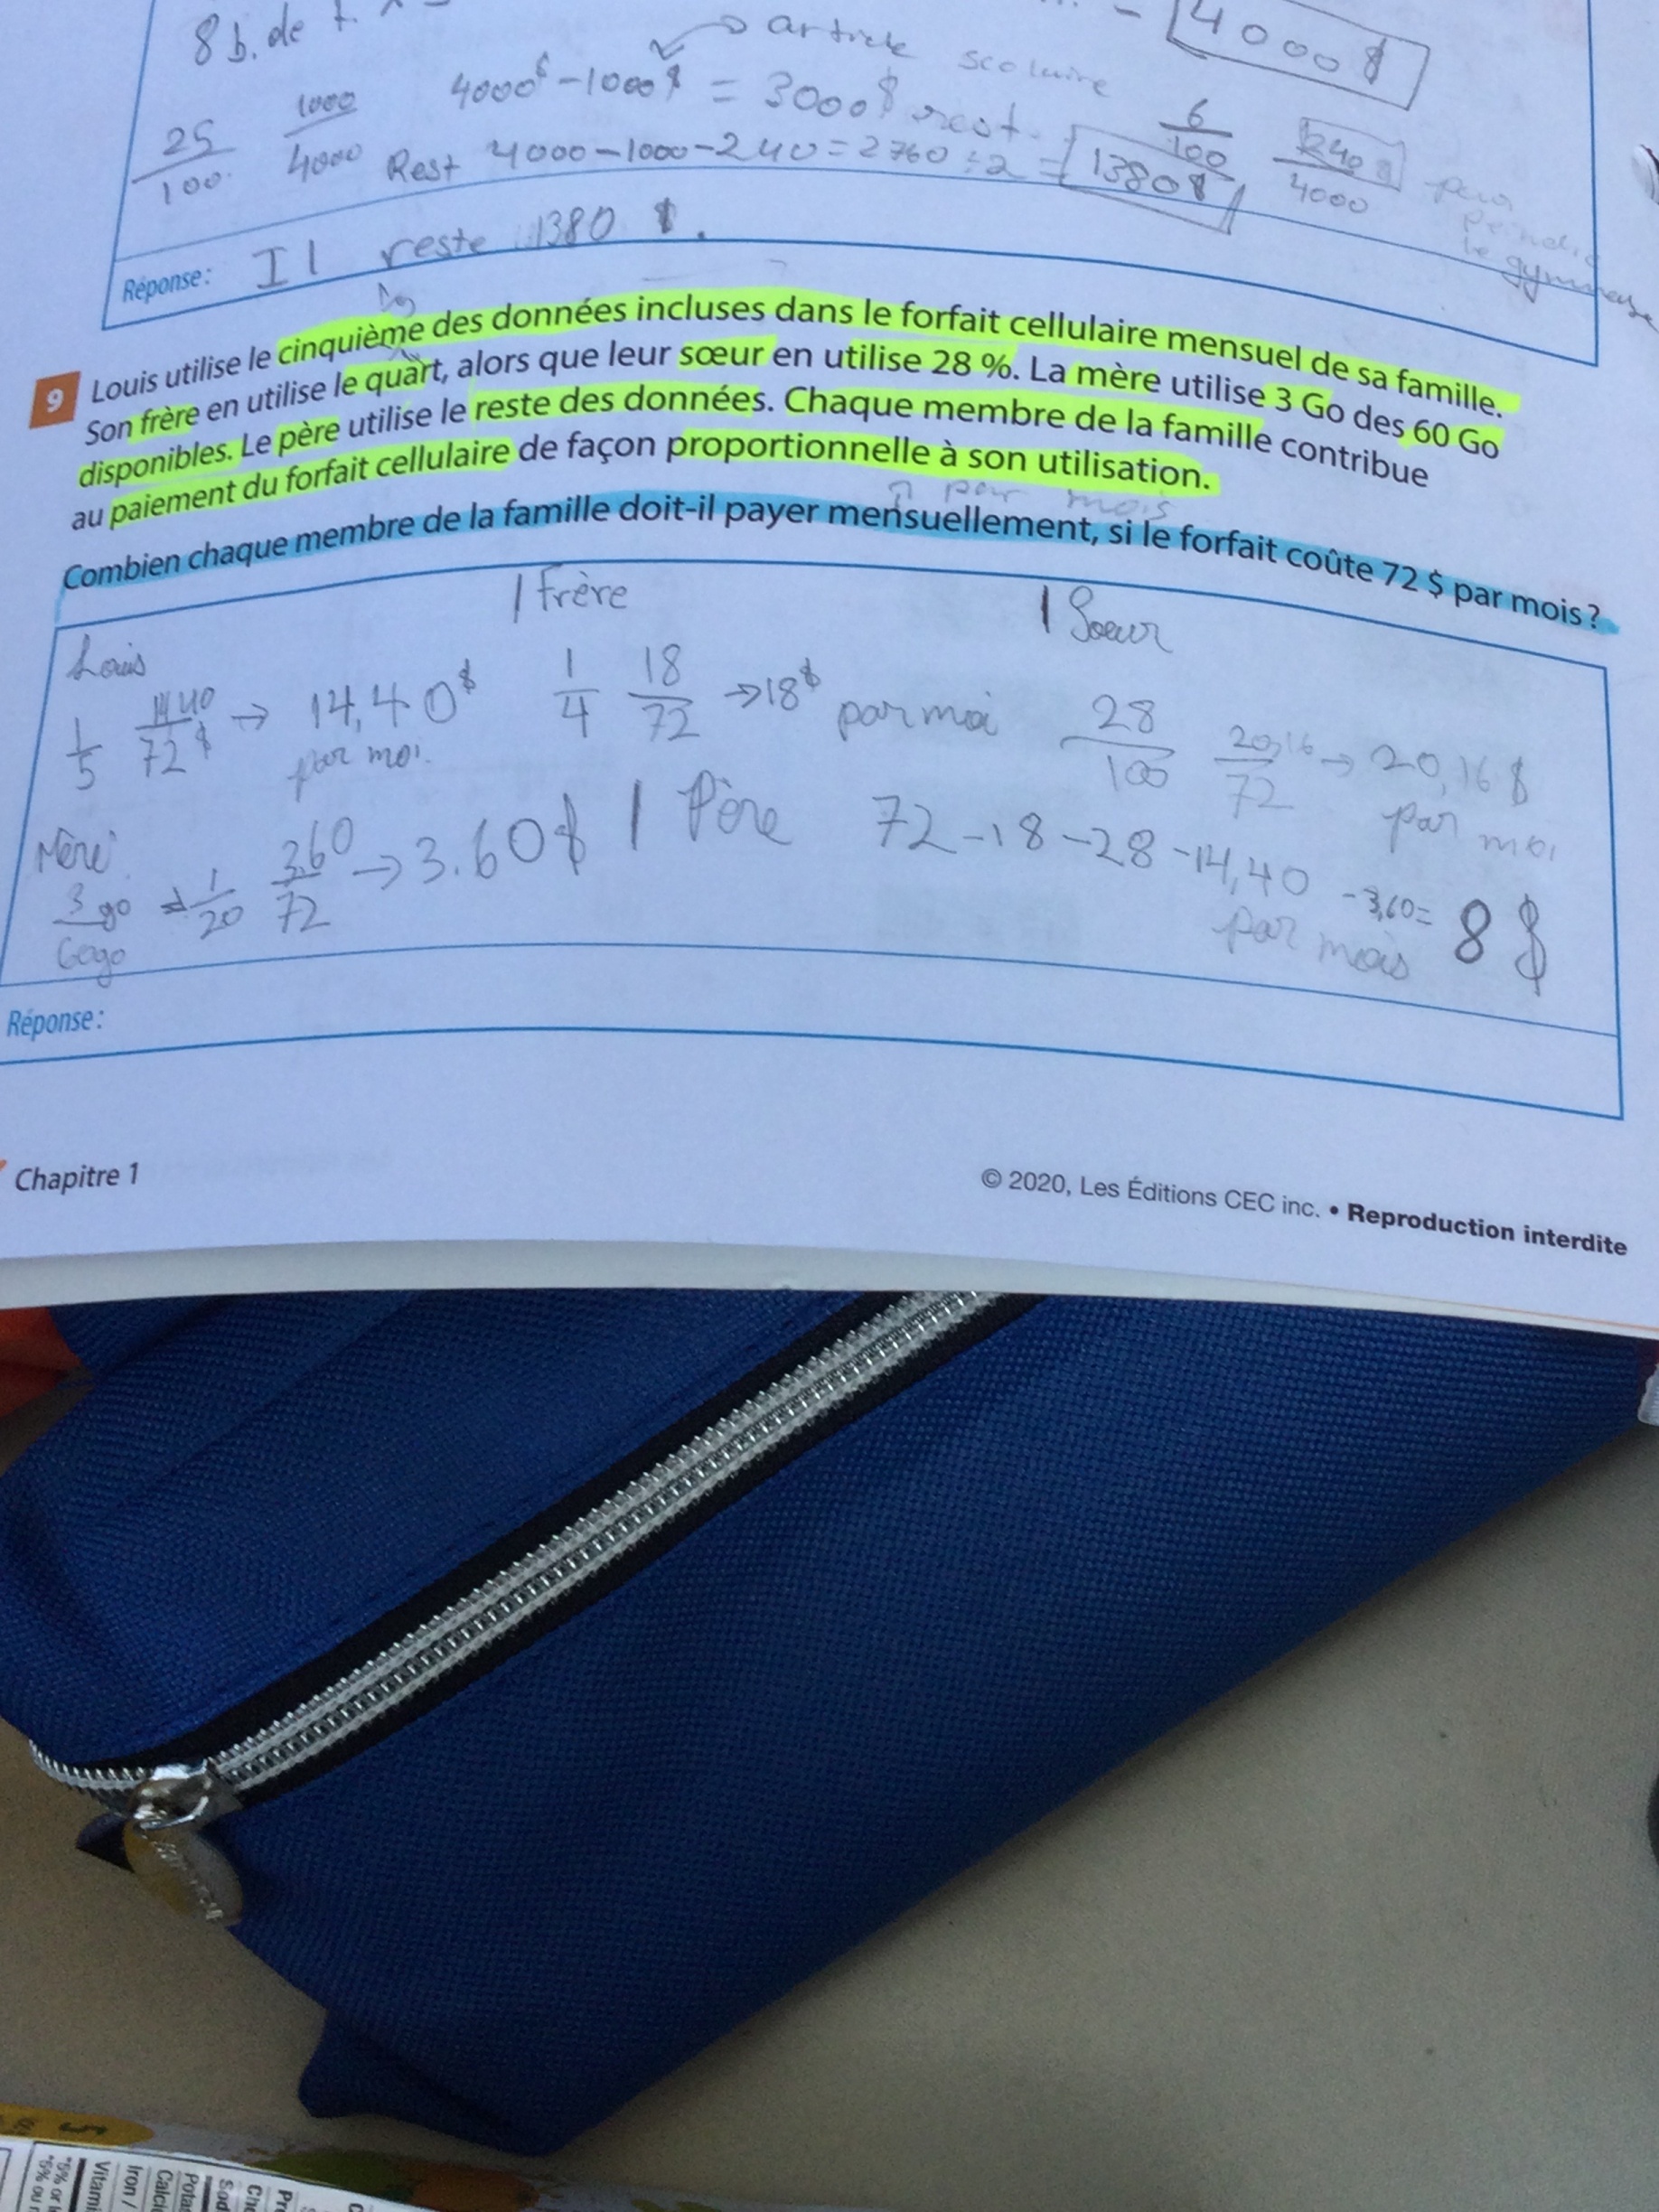 8 b. de
4000 $
article scolaire
4000$ - 1000$ = 3000$ rest.
25/100 1000/4000
6/100 240$/4000
Rest 4000-1000-240=2760÷2=1380$
Réponse: Il reste 1380 $.
9 Louis utilise le cinquième des données incluses dans le forfait cellulaire mensuel de sa famille.
Son frère en utilise le quart, alors que leur sœur en utilise 28 %. La mère utilise 3 Go des 60 Go
disponibles. Le père utilise le reste des données. Chaque membre de la famille contribue
au paiement du forfait cellulaire de façon proportionnelle à son utilisation.
par mois
Combien chaque membre de la famille doit-il payer mensuellement, si le forfait coûte 72 $ par mois?
Louis | Frère | Soeur
1/5 1440/72$ → 14,40$ par moi.
1/4 18/72 → 18$ par moi
28/100 20,16/72 → 20,16$ par moi
Mère | Père
3 go/60go → 1/20 360/72 → 3.60$
72-18-28-14,40-3,60= 8 $
par mois
Réponse:
Chapitre 1
© 2020, Les Éditions CEC inc. • Reproduction interdite